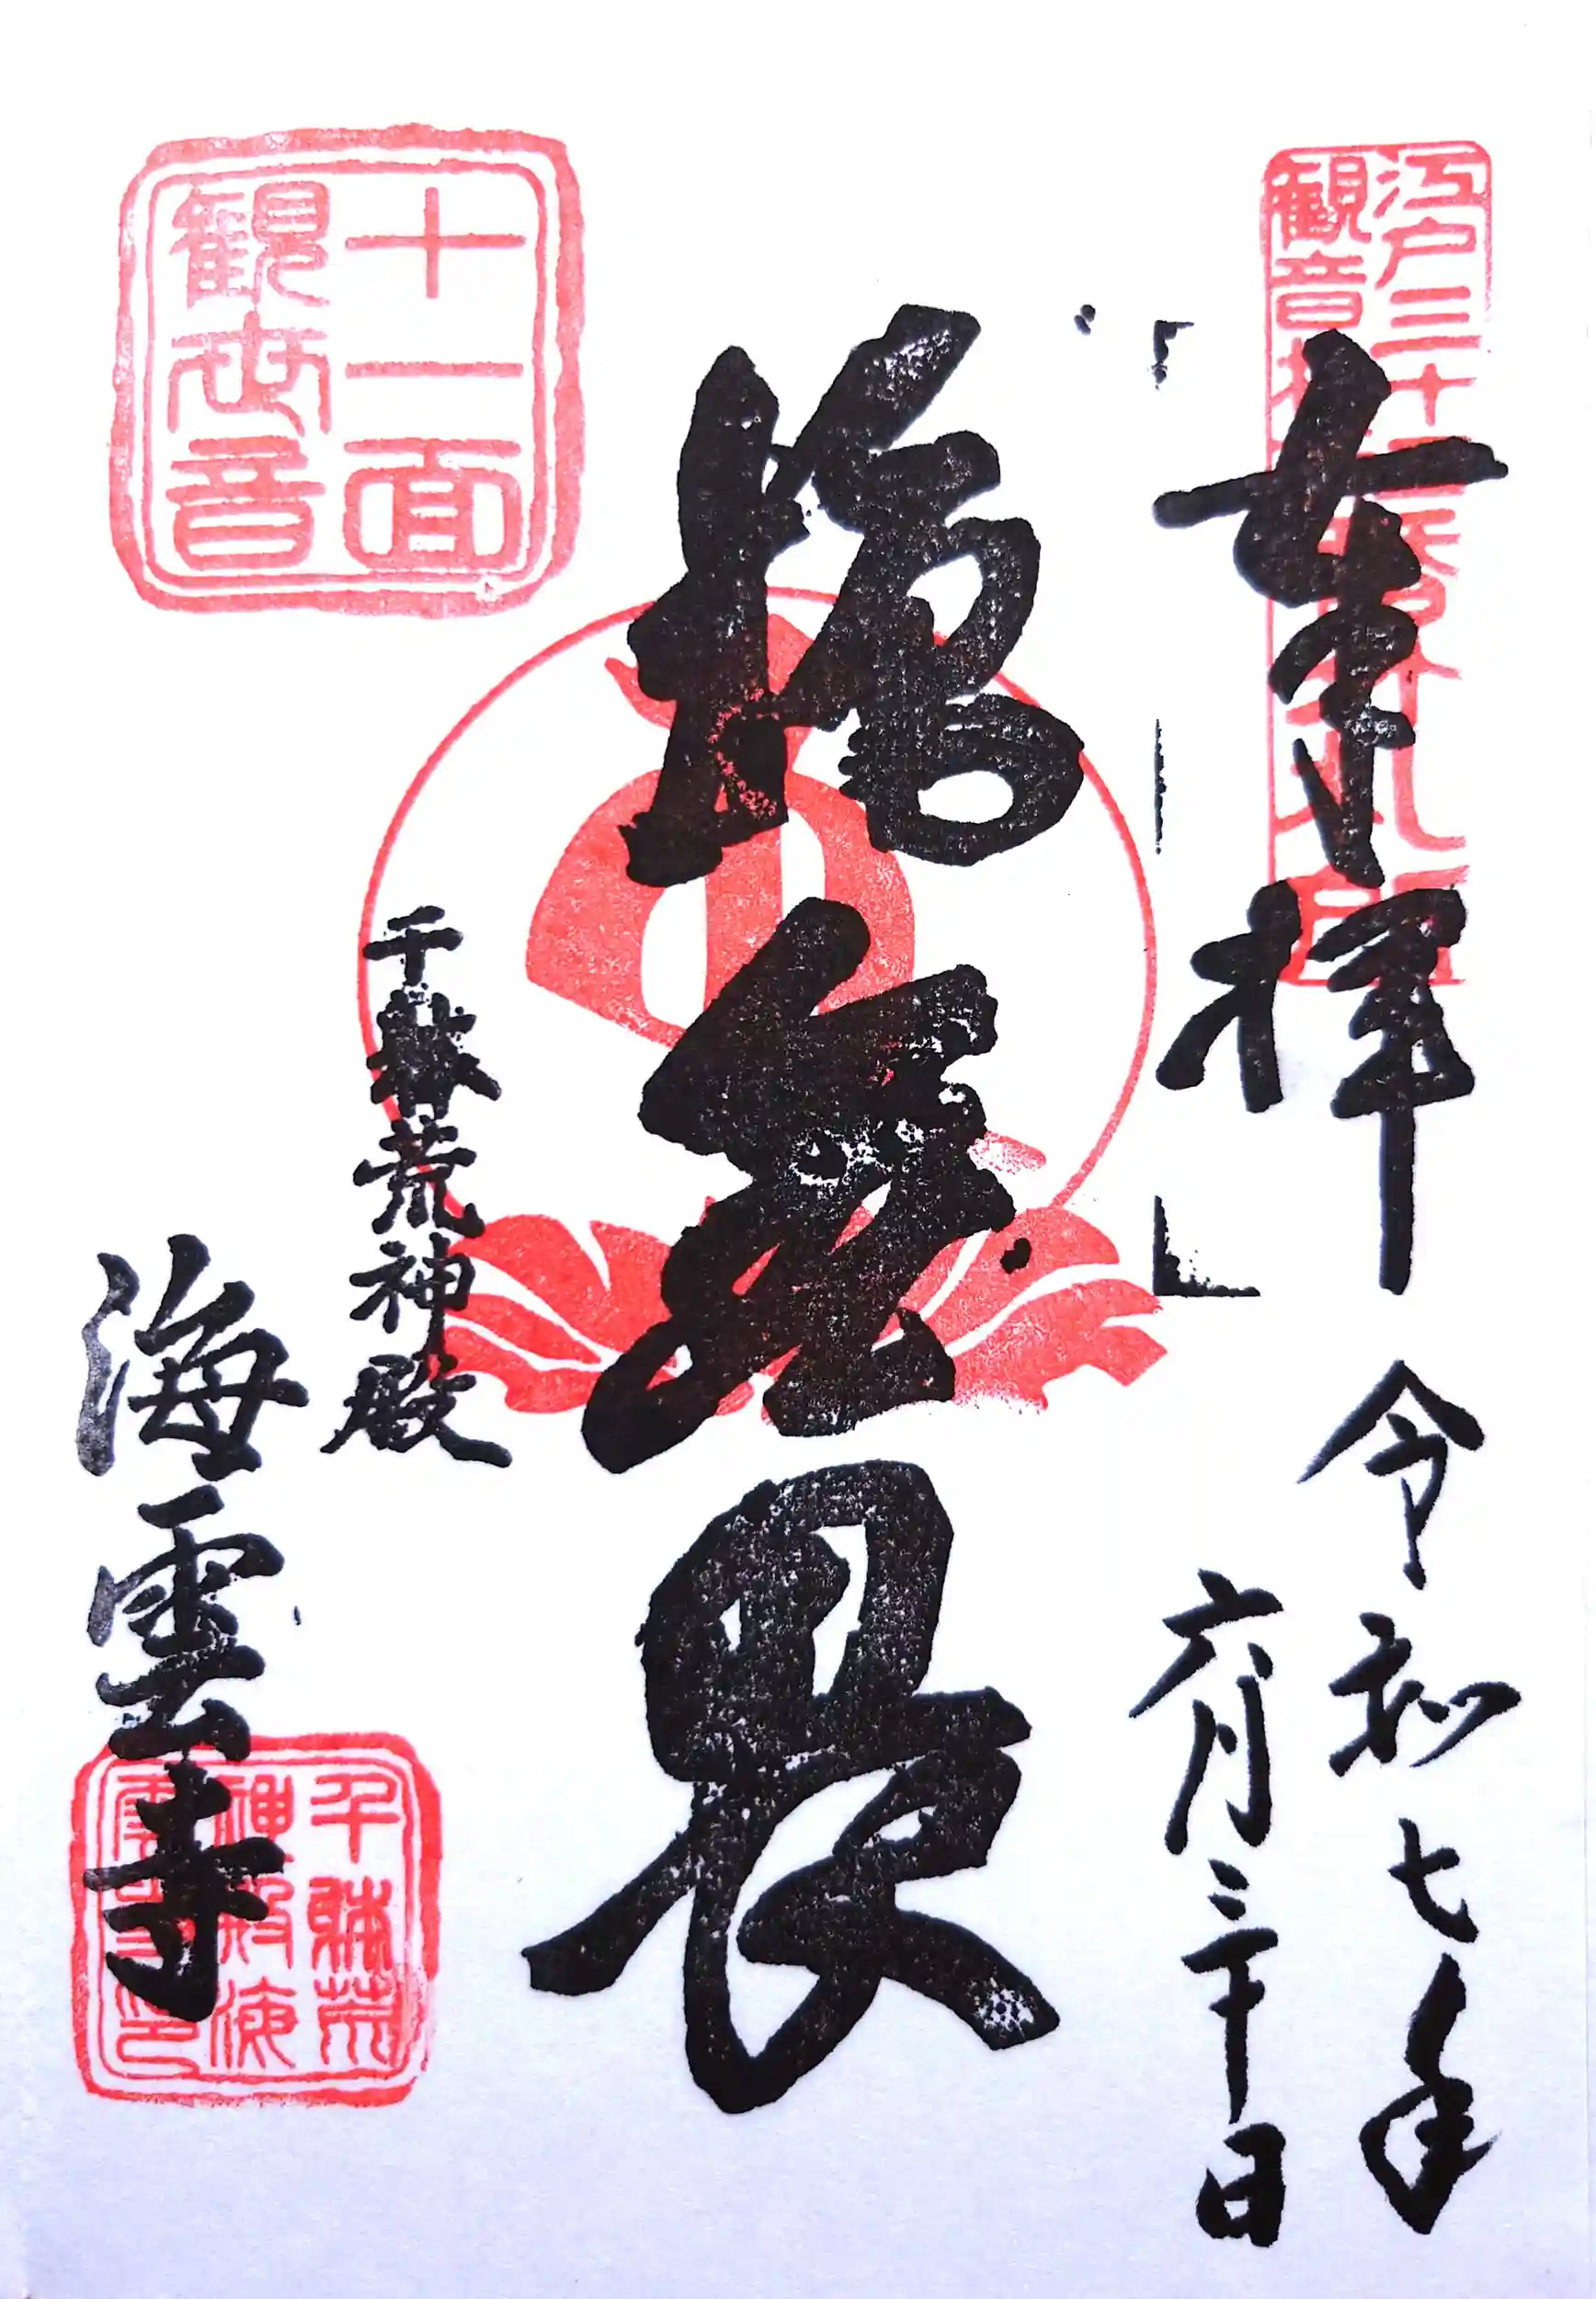 江戸三十三
観音札所
奉拝
令和七年
六月三十日
施無畏
十一面
観世音
千躰荒神殿
海雲寺
千躰荒
神殿海
雲寺印